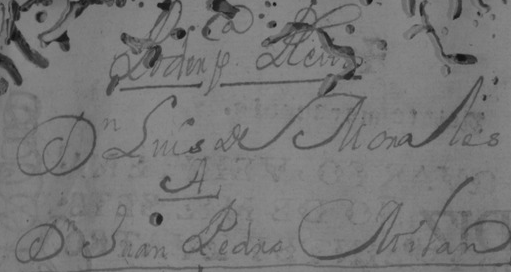 Poder p.ª Pleitos
Dn Luis de Morales
A
Dn Juan Pedro Milan